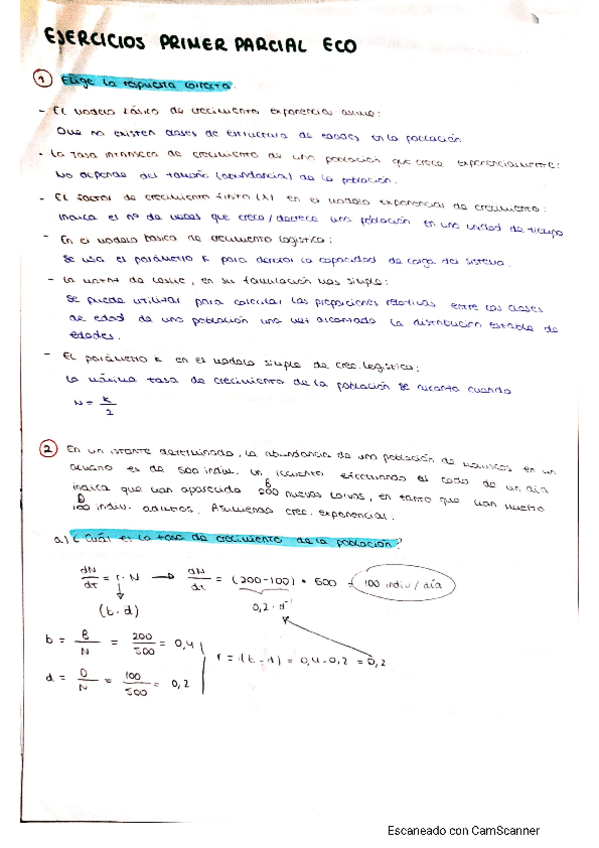 EJERCICIOS PRIMER PARCIAL ECO
1 Elige la respuesta correcta.
- El modelo básico de crecimiento exponencial asume:
Que no existen clases de estructura de edades en la población
- La tasa intrínseca de crecimiento de una población que crece exponencialmente:
No depende del tamaño (abundancia) de la población.
- El factor de crecimiento finito (λ) en el modelo exponencial de crecimiento:
Indica el nº de veces que crece/decrece una población en una unidad de tiempo
- En el modelo básico de crecimiento logístico:
Se usa el parámetro K para denotar la capacidad de carga del sistema.
- La matriz de Leslie, en su formulación más simple:
Se puede utilizar para calcular las proporciones relativas entre las clases
de edad de una población una vez alcanzada la distribución estable de
edades.
- El parámetro K en el modelo simple de crec. logístico:
la máxima tasa de crecimiento de la población se alcanza cuando
N = K/2
2 En un instante determinado, la abundancia de una población de moluscos en un
acuario es de 500 indiv. Un recuento efectuado al cabo de un día
B
indica que han aparecido 200 nuevas larvas, en tanto que han muerto
D
100 indiv. adultos. Asumiendo crec. exponencial:
a) ¿Cuál es la tasa de crecimiento de la población?
dN/dt = r · N → dN/dt = (200-100) · 500 = 100 indiv/día
(b-d) 0,2 · d⁻¹
b = B/N = 200/500 = 0,4
r = (b-d) = 0,4-0,2 = 0,2
d = D/N = 100/500 = 0,2
Escaneado con CamScanner